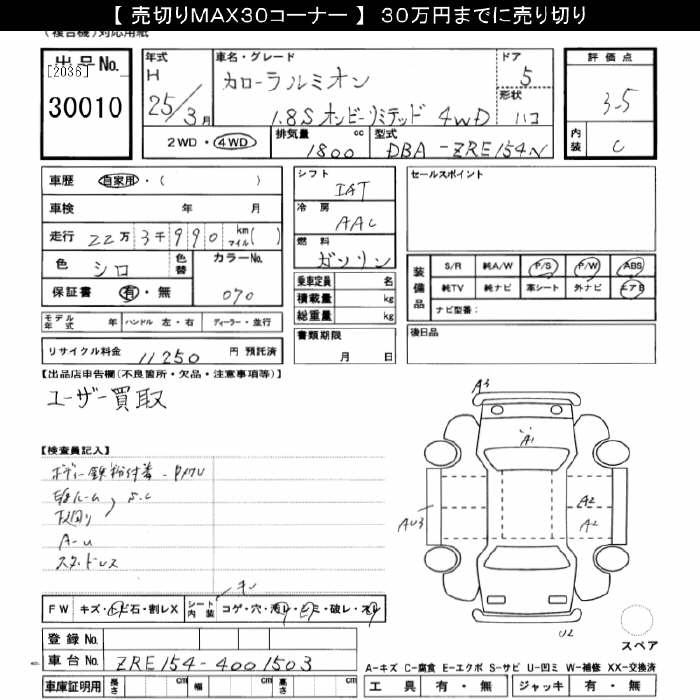 【 売切りMAX30コーナー 】 30万円までに売り切り
(複合機)対応用紙
出品No.
[2036]
30010
年式
H
25/3月
車名・グレード
カローラルミオン
1.8S オンビーリミテッド 4WD
ドア
5
形状
ハコ
評価点
3.5
内装
C
2WD・4WD
排気量 cc
1800
型式
DBA-ZRE154N
車歴 自家用・( )
車検 年 月
走行 22万3千990 km マイル( )
色 シロ
色替
カラーNo.
070
保証書 有・無
モデル年式 年 ハンドル 左・右 ディーラー・並行
リサイクル料金 11250 円 預託済
シフト
IAT
冷房
AAC
燃料
ガソリン
乗車定員 名
積載量 kg
総重量 kg
書類期限
月 日
セールスポイント
装備品
S/R 純A/W P/S P/W ABS
純TV 純ナビ 革シート 外ナビ エアB
ナビ型番:
後日品
【出品店申告欄(不良箇所・欠品・注意事項等)】
ユーザー買取
【検査員記入】
ボディー鉄粉付着
S.C
下回り
A-U
スタッドレス
A3
A1
A2
A2
AU3
U2
FW キズ・ヒビ石・割レX シート内装 コゲ・穴・汚レ・シミ・破レ・スレ
登録No.
車台No. ZRE154-4001503
車庫証明用 長さ cm 幅 cm 高さ cm
スペア
A-キズ C-腐食 E-エクボ S-サビ U-凹ミ W-補修 XX-交換済
工具 有・無 ジャッキ 有・無